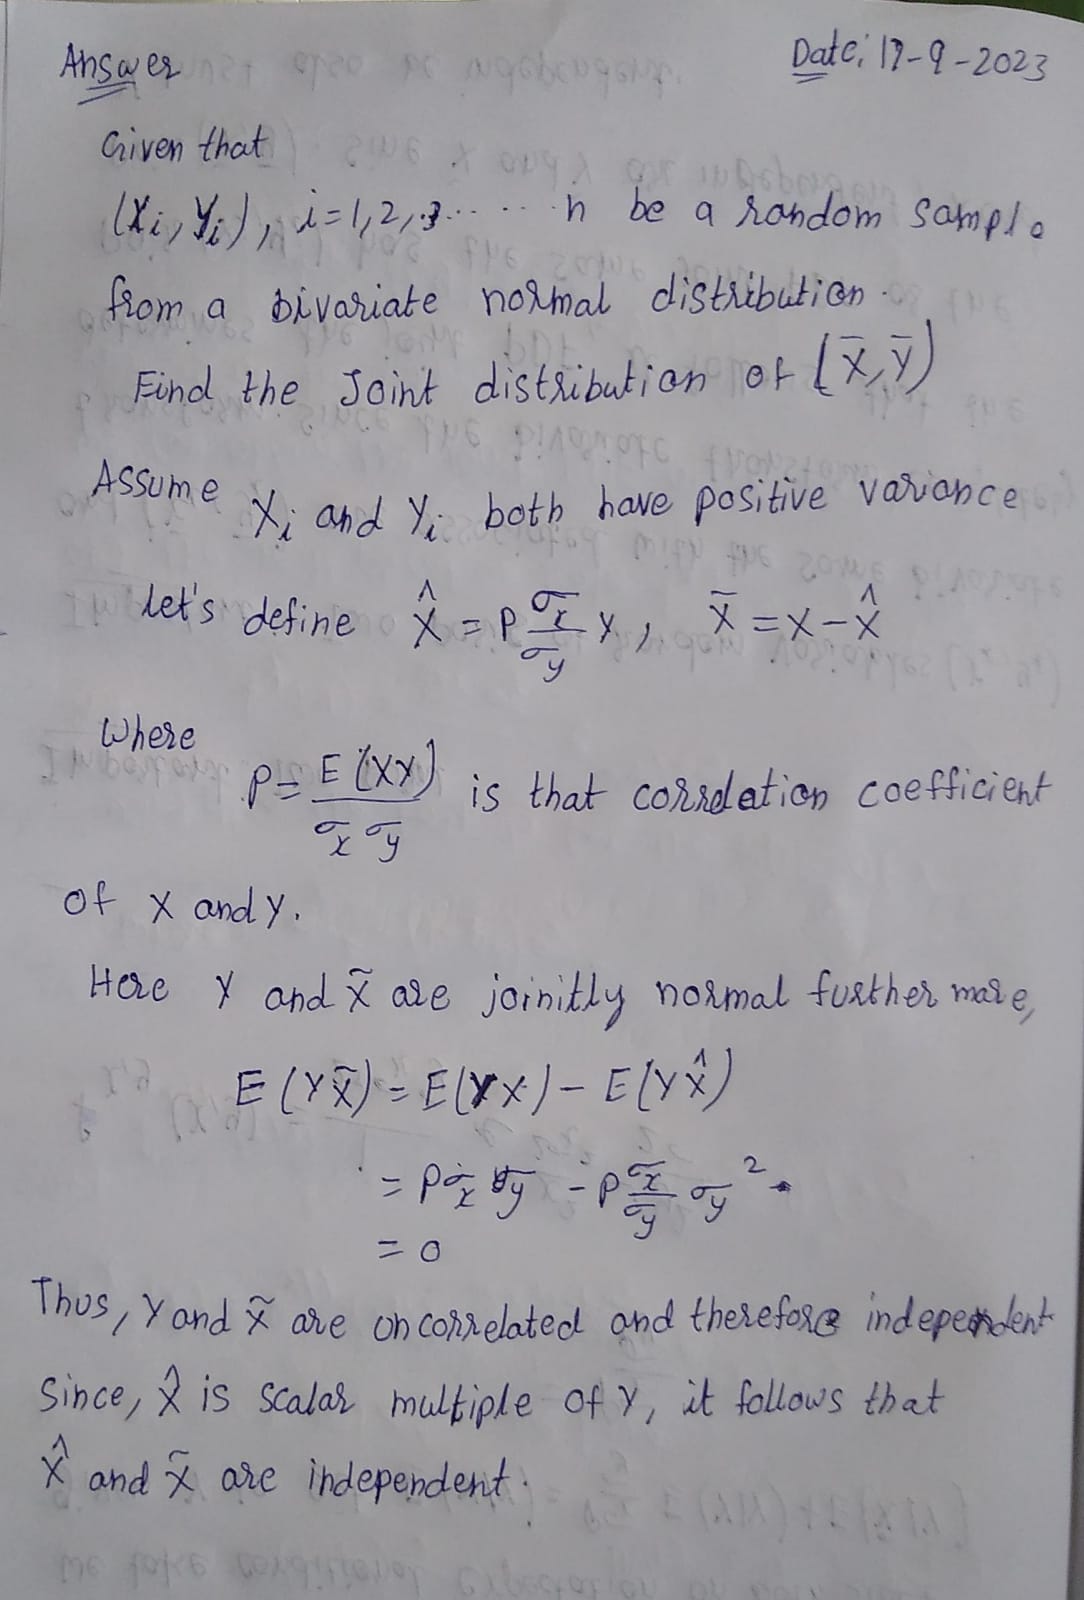 Answer
Date: 17-9-2023
Given that
(Xi, Yi), i=1,2,3...... n be a random sample
from a bivariate normal distribution.
Find the Joint distribution of (X̄,Ȳ)
Assume Xi and Yi both have positive variance
let's define X̂ = P σx/σy Y, X̄ = X - X̂
Where
P = E(XY)/σx σy is that correlation coefficient
of X and Y.
Here Y and X̃ are joinitly normal further more,
E(YX̃) = E(YX) - E(YX̂)
= Pσx σy - P σx/σy σy²
= 0
Thus, Y and X̃ are uncorrelated and therefore independent
Since, X̂ is scalar multiple of Y, it follows that
X̂ and X̃ are independent.